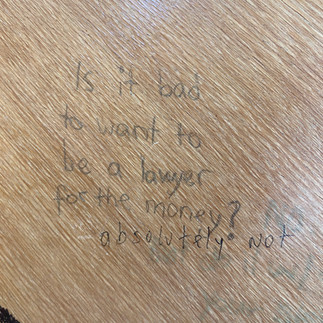 Is it bad
to want to
be a lawyer
for the money?
absolutely not